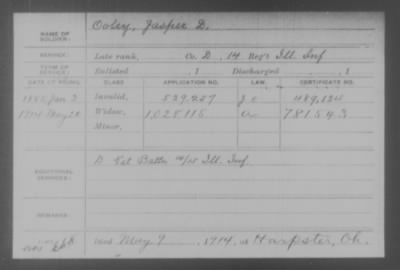 NAME OF SOLDIER: Ooley, Jasper D.
SERVICE: Late rank, Co. D, 14 Reg't Ill. Inf
TERM OF SERVICE: Enlisted , 1 Discharged , 1
DATE OF FILING. CLASS APPLICATION NO. LAW. CERTIFICATE NO.
Jan 3 Invalid, 489,124
1914 May 22 Widow, 1,028,115 781543
Minor,
ADDITIONAL SERVICES: D Vet Batt'n Ill. Inf.
REMARKS:
Died May 9, 1914, at Harpster, Oh.